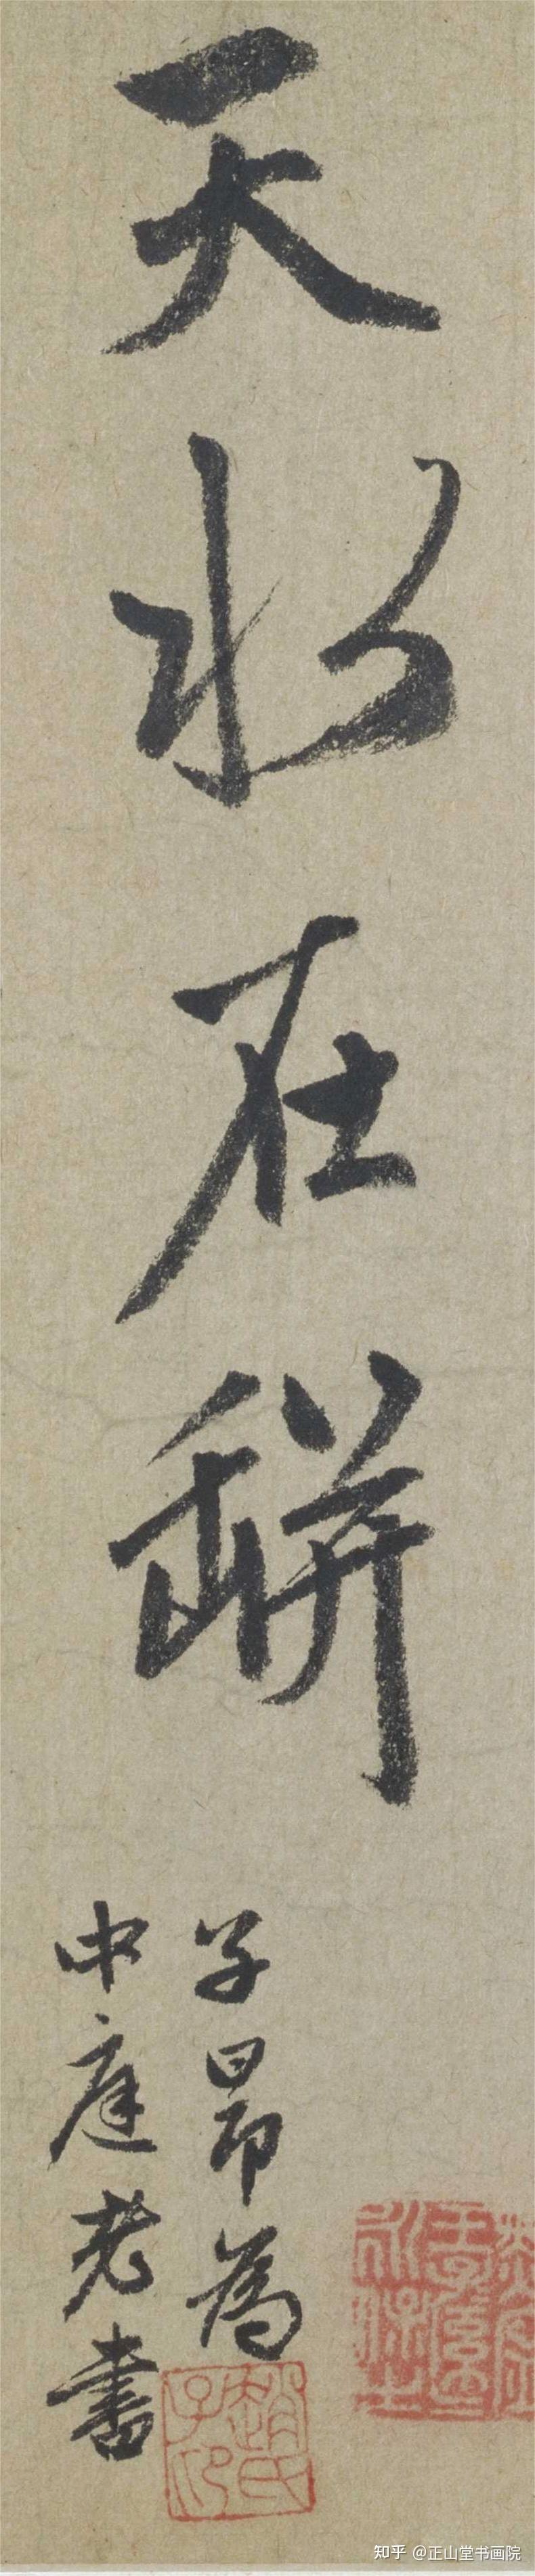 天水在缾
子昂為
中庭老書
趙氏子印
知乎 @正山堂书画院